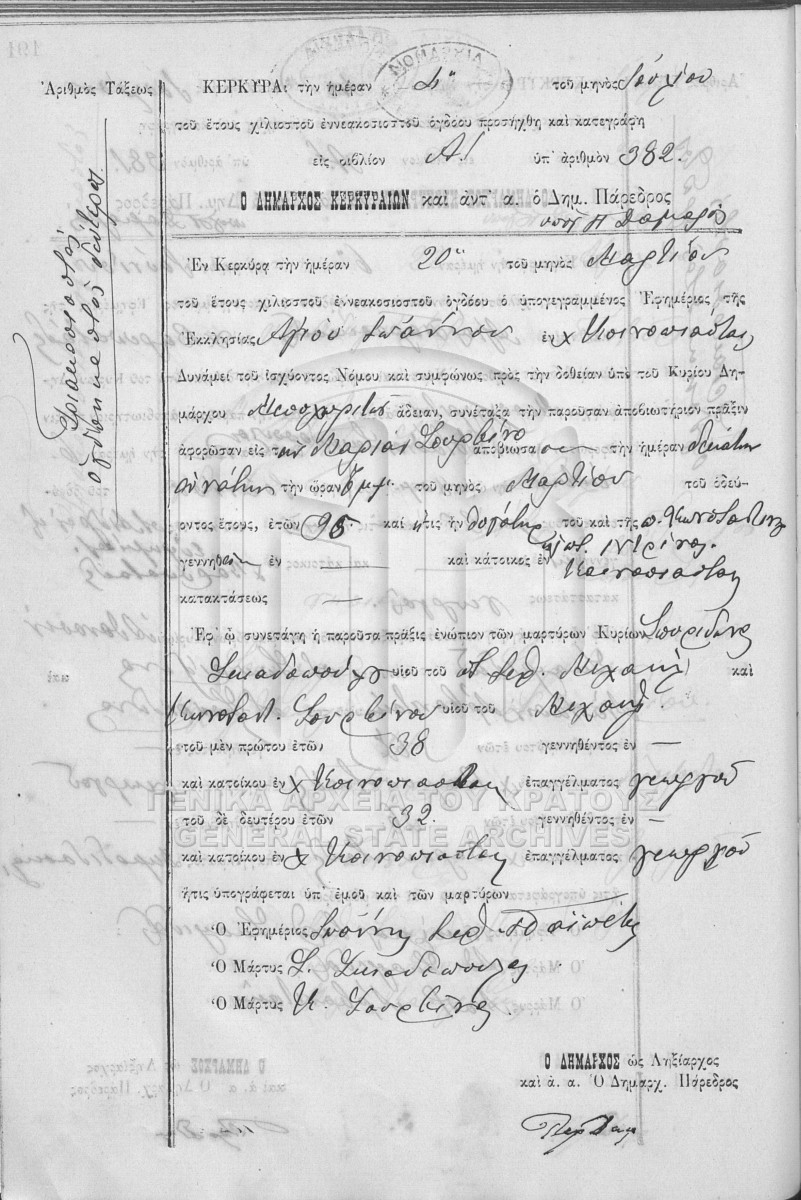 ΝΟΜΑΡΧΙΑ
Ἀριθμὸς Τάξεως
Τριακοσιοστὸς
ὀγδοηκοστὸς δεύτερος
ΚΕΡΚΥΡΑι τὴν ἡμέραν τοῦ μηνὸς Ἰουλίου
τοῦ ἔτους χιλιοστοῦ ἐννεακοσιοστοῦ ὀγδόου προσήχθη καὶ κατεγράφη
εἰς βιβλίον Α! ὑπ' ἀριθμὸν 382.
Ο ΔΗΜΑΡΧΟΣ ΚΕΡΚΥΡΑΙΩΝ καὶ ἀντ' α. ὁ Δημ. Πάρεδρος
Ἐν Κερκύρᾳ τὴν ἡμέραν 20ὴ τοῦ μηνὸς Μαρτίου
τοῦ ἔτους χιλιοστοῦ ἐννεακοσιοστοῦ ὀγδόου ὁ ὑπογεγραμμένος Ἐφημέριος τῆς
Ἐκκλησίας Ἁγίου Ἰωάννου ἐν χ Κοινοπιαστας
Δυνάμει τοῦ ἰσχύοντος Νόμου καὶ συμφώνως πρὸς τὴν δοθεῖσαν ὑπὸ τοῦ Κυρίου Δη-
μάρχου Μεσοχωριτῶν ἄδειαν, συνέταξα τὴν παροῦσαν ἀποβιωτήριον πρᾶξιν
ἀφορῶσαν εἰς τὴν Μαρίαν Σουρβίνο ἀποβιώσασαν τὴν ἡμέραν δεκάτην
ἐννάτην τὴν ὥραν μμ. τοῦ μηνὸς Μαρτίου τοῦ ὁδεύ-
οντος ἔτους, ἐτῶν 95 καὶ ἥτις ἦν θυγάτηρ τοῦ καὶ τῆς π. Κωνσταντίνου
γεννηθεῖσα ἐν — καὶ κάτοικος ἐν Κοινοπιαστας
κατακτάσεως —
Ἐφ' ᾧ συνετάγη ἡ παροῦσα πρᾶξις ἐνώπιον τῶν μαρτύρων Κυρίων Σπυρίδωνος
Σκιαδοπούλου υἱοῦ τοῦ Μιχαὴλ καὶ
Κωνσταντ. Σουρβίνου υἱοῦ τοῦ Μιχαὴλ.
τοῦ μὲν πρώτου ἐτῶν 38 γεννηθέντος ἐν —
καὶ κατοίκου ἐν χ Κοινοπιαστας ἐπαγγέλματος γεωργοῦ
ΓΕΝΙΚΑ ΑΡΧΕΙΑ ΤΟΥ ΚΡΑΤΟΥΣ
τοῦ δὲ δευτέρου ἐτῶν 32. γεννηθέντος ἐν —
GENERAL STATE ARCHIVES
καὶ κατοίκου ἐν χ Κοινοπιαστας ἐπαγγέλματος γεωργοῦ
ἥτις ὑπογράφεται ὑπ' ἐμοῦ καὶ τῶν μαρτύρων
Ὁ Ἐφημέριος Ἰωάννης
Ὁ Μάρτυς Σ. Σκιαδόπουλος
Ὁ Μάρτυς Κ. Σουρβίνος.
Ο ΔΗΜΑΡΧΟΣ ὡς Ληξίαρχος
καὶ ἀ. α. Ὁ Δημαρχ. Πάρεδρος